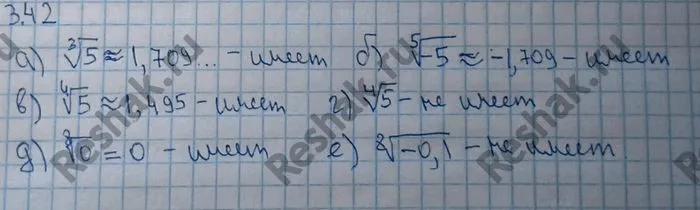 3.42
а) ∛5 ≈ 1,709... - имеет б) ⁵√-5 ≈ -1,709 - имеет
в) ⁴√5 ≈ 1,495 - имеет г) ⁴√5 - не имеет
д) ⁸√0 = 0 - имеет е) ⁸√-0,1 - не имеет
Reshak.ru